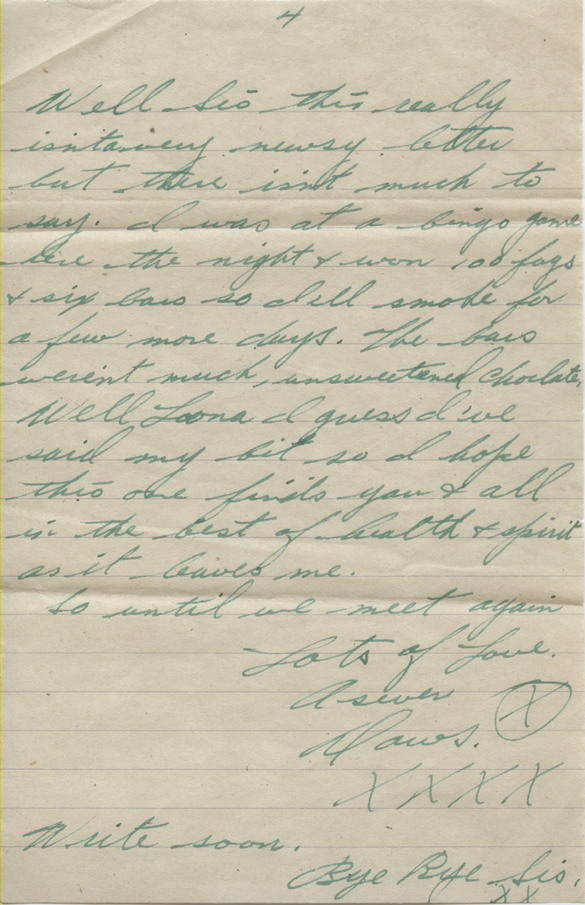 4
Well Sis this really
isn't a very newsy letter
but there isn't much to
say. I was at a bingo game
here the night & won 100 fags
& six bars so I'll smoke for
a few more days. The bars
weren't much, unsweetened choclate
Well Leona I guess I've
said my bit so I hope
this one finds you & all
in the best of health & spirit
as it leaves me.
So until we meet again
Lots of Love.
As ever
X
XXXX
Write soon.
Bye Bye Sis.
XX